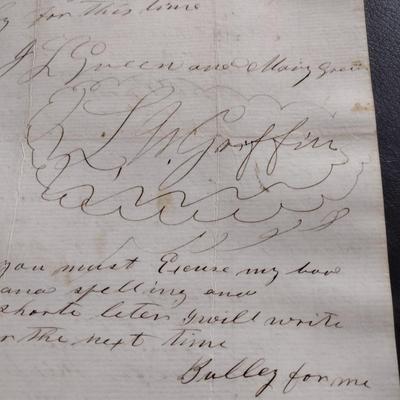 for this time
J L Green and Mary Green
L. W. Griffin
you must Excuse my bad
and spelling and
shorte leter I will write
the next time
Bulley for me